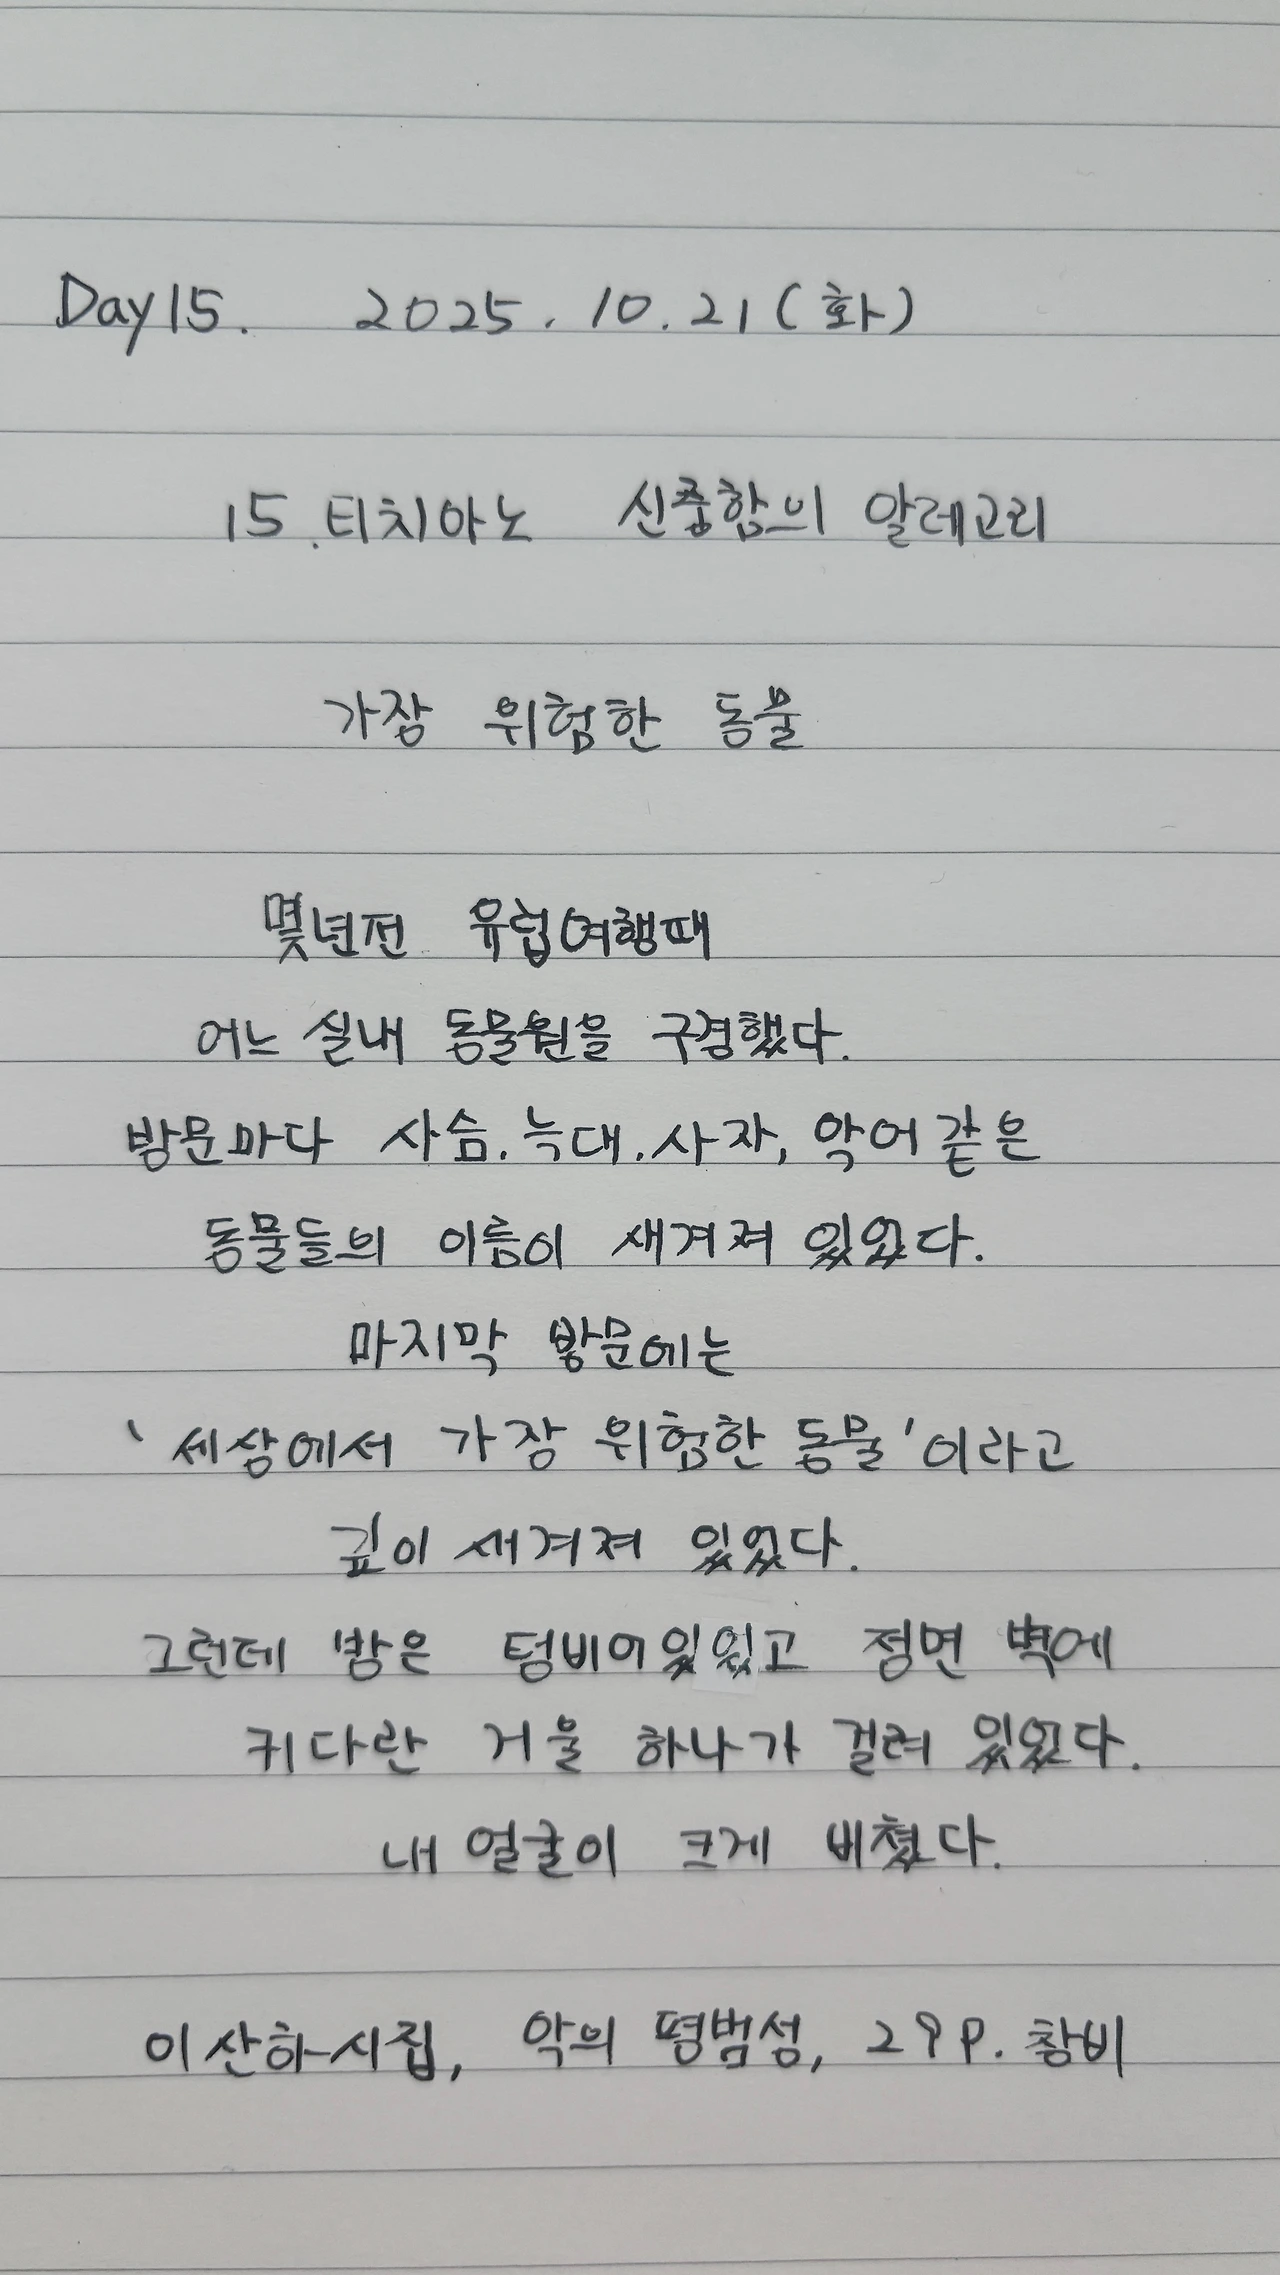 Day15. 2025.10.21(화)
15.티치아노 신중함의 알레고리
가장 위험한 동물
몇년전 유럽여행때
어느 실내 동물원을 구경했다.
방문마다 사슴.늑대.사자, 악어같은
동물들의 이름이 새겨져 있었다.
마지막 방문에는
'세상에서 가장 위험한 동물'이라고
깊이 새겨져 있었다.
그런데 방은 텅비어있있고 정면 벽에
커다란 거울 하나가 걸려 있었다.
내 얼굴이 크게 비쳤다.
이산하시집, 악의 평범성, 29p. 창비